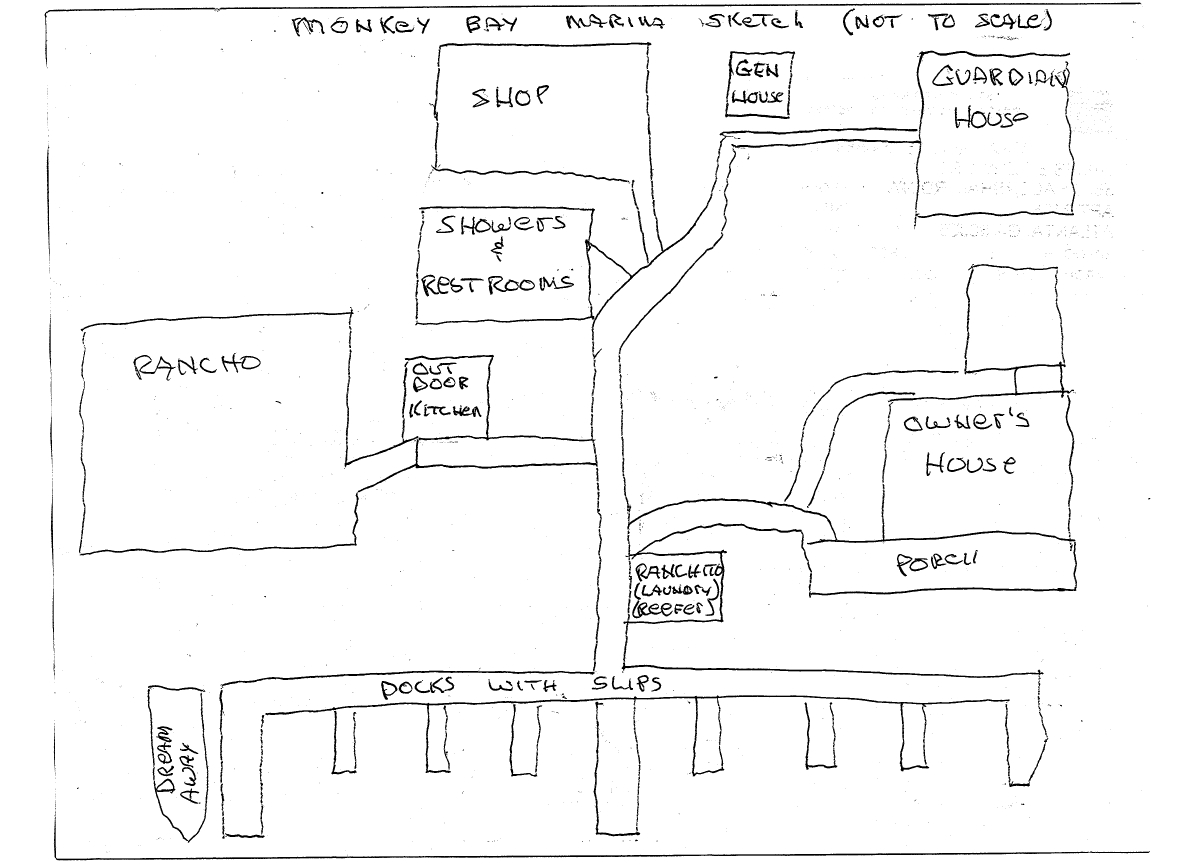 MONKEY BAY MARINA SKETCH (NOT TO SCALE)
SHOP
GEN
HOUSE
GUARDIAN
HOUSE
SHOWERS
&
RESTROOMS
RANCHO
OUT
DOOR
KITCHEN
OWNER'S
HOUSE
PORCH
RANCHITO
(LAUNDRY)
(REEFER)
DOCKS WITH SLIPS
DREAM
AWAY